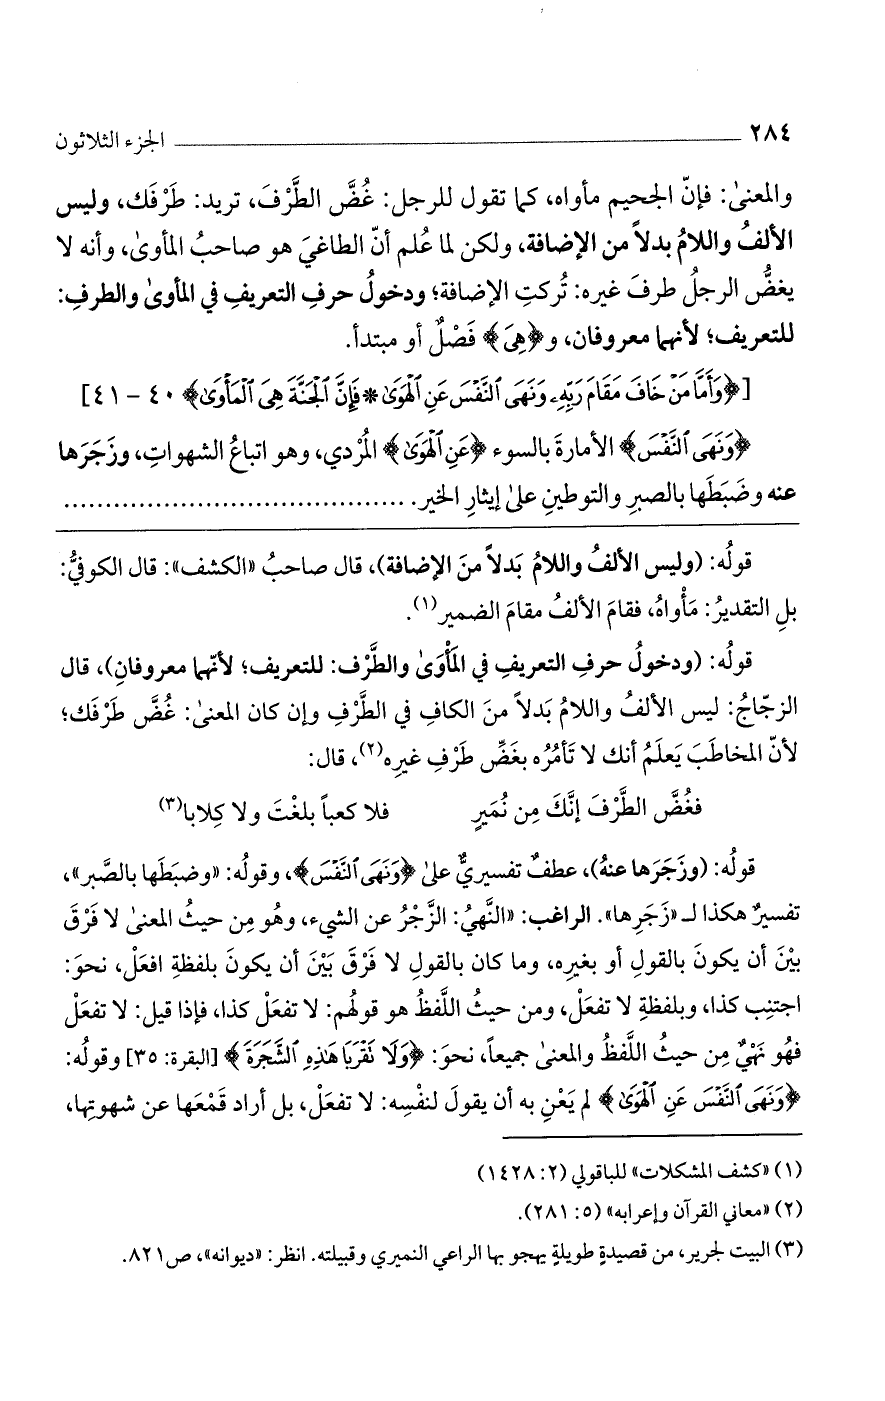 ٢٨٤ الجزء الثلاثون
والمعنىٰ: فإنّ الجحيم مأواه، كما تقول للرجل: غُضَّ الطَّرْفَ، تريد: طَرْفَك، وليس
الألفُ واللامُ بدلاً من الإضافة، ولكن لما عُلم أنّ الطاغيَ هو صاحبُ المأوىٰ، وأنه لا
يغضُّ الرجلُ طرفَ غيره: تُركتِ الإضافة؛ ودخولُ حرفِ التعريفِ في المأوىٰ والطرفِ:
للتعريف؛ لأنهما معروفان، و﴿هِيَ﴾ فَصْلٌ أو مبتدأ.
[﴿وَأَمَّا مَنْ خَافَ مَقَامَ رَبِّهِۦ وَنَهَى ٱلنَّفْسَ عَنِ ٱلْهَوَىٰ * فَإِنَّ ٱلْجَنَّةَ هِىَ ٱلْمَأْوَىٰ﴾ ٤٠ - ٤١]
﴿وَنَهَى ٱلنَّفْسَ﴾ الأمارةَ بالسوء ﴿عَنِ ٱلْهَوَىٰ﴾ المُرْدي، وهو اتباعُ الشهواتِ، وزَجَرَها
عنه وضَبَطَها بالصبرِ والتوطينِ علىٰ إيثارِ الخير. ........................................
قولُه: (وليس الألفُ واللامُ بَدلاً منَ الإضافة)، قال صاحبُ «الكشف»: قال الكوفيُّ:
بلِ التقديرُ: مَأْواهُ، فقامَ الألفُ مقامَ الضمير(١).
قولُه: (ودخولُ حرفِ التعريفِ في المَأْوَىٰ والطَّرْف: للتعريف؛ لأنّهما معروفانِ)، قال
الزجّاجُ: ليس الألفُ واللامُ بَدلاً منَ الكافِ في الطَّرْفِ وإن كان المعنىٰ: غُضَّ طَرْفَك؛
لأنّ المخاطَبَ يَعلَمُ أنك لا تَأمُرُه بغَضِّ طَرْفِ غيرِه(٢)، قال:
فغُضَّ الطَّرْفَ إنَّكَ مِن نُمَيرٍ فلا كعباً بلغْتَ ولا كِلابا(٣)
قولُه: (وزَجَرَها عنهُ)، عطفٌ تفسيريٌّ علىٰ ﴿وَنَهَى ٱلنَّفْسَ﴾، وقولُه: «وضبَطَها بالصَّبر»،
تفسيرٌ هكذا لـ «زَجَرِها». الراغب: «النَّهيُ: الزَّجْرُ عن الشيء، وهُو مِن حيثُ المعنىٰ لا فَرْقَ
بيْنَ أن يكونَ بالقولِ أو بغيرِه، وما كان بالقولِ لا فَرْقَ بَيْنَ أن يكونَ بلفظةِ افعَلْ، نحوَ:
اجتنِب كذا، وبلفظةِ لا تفعَلْ، ومن حيثُ اللَّفظُ هو قولُهم: لا تفعَلْ كذا، فإذا قيل: لا تفعَلْ
فهُو نَهْيٌ مِن حيثُ اللَّفظُ والمعنىٰ جميعاً، نحوَ: ﴿وَلَا تَقْرَبَا هَٰذِهِ ٱلشَّجَرَةَ﴾ [البقرة: ٣٥] وقولُه:
﴿وَنَهَى ٱلنَّفْسَ عَنِ ٱلْهَوَىٰ﴾ لم يَعْنِ به أن يقولَ لنفْسِه: لا تفعَلْ، بل أراد قَمْعَها عن شهوتِها،
(١) «كشف المشكلات» للباقولي (٢: ١٤٢٨)
(٢) «معاني القرآن وإعرابه» (٥: ٢٨١).
(٣) البيت لجرير، من قصيدةٍ طويلةٍ يهجو بها الراعي النميري وقبيلته. انظر: «ديوانه»، ص٨٢١.